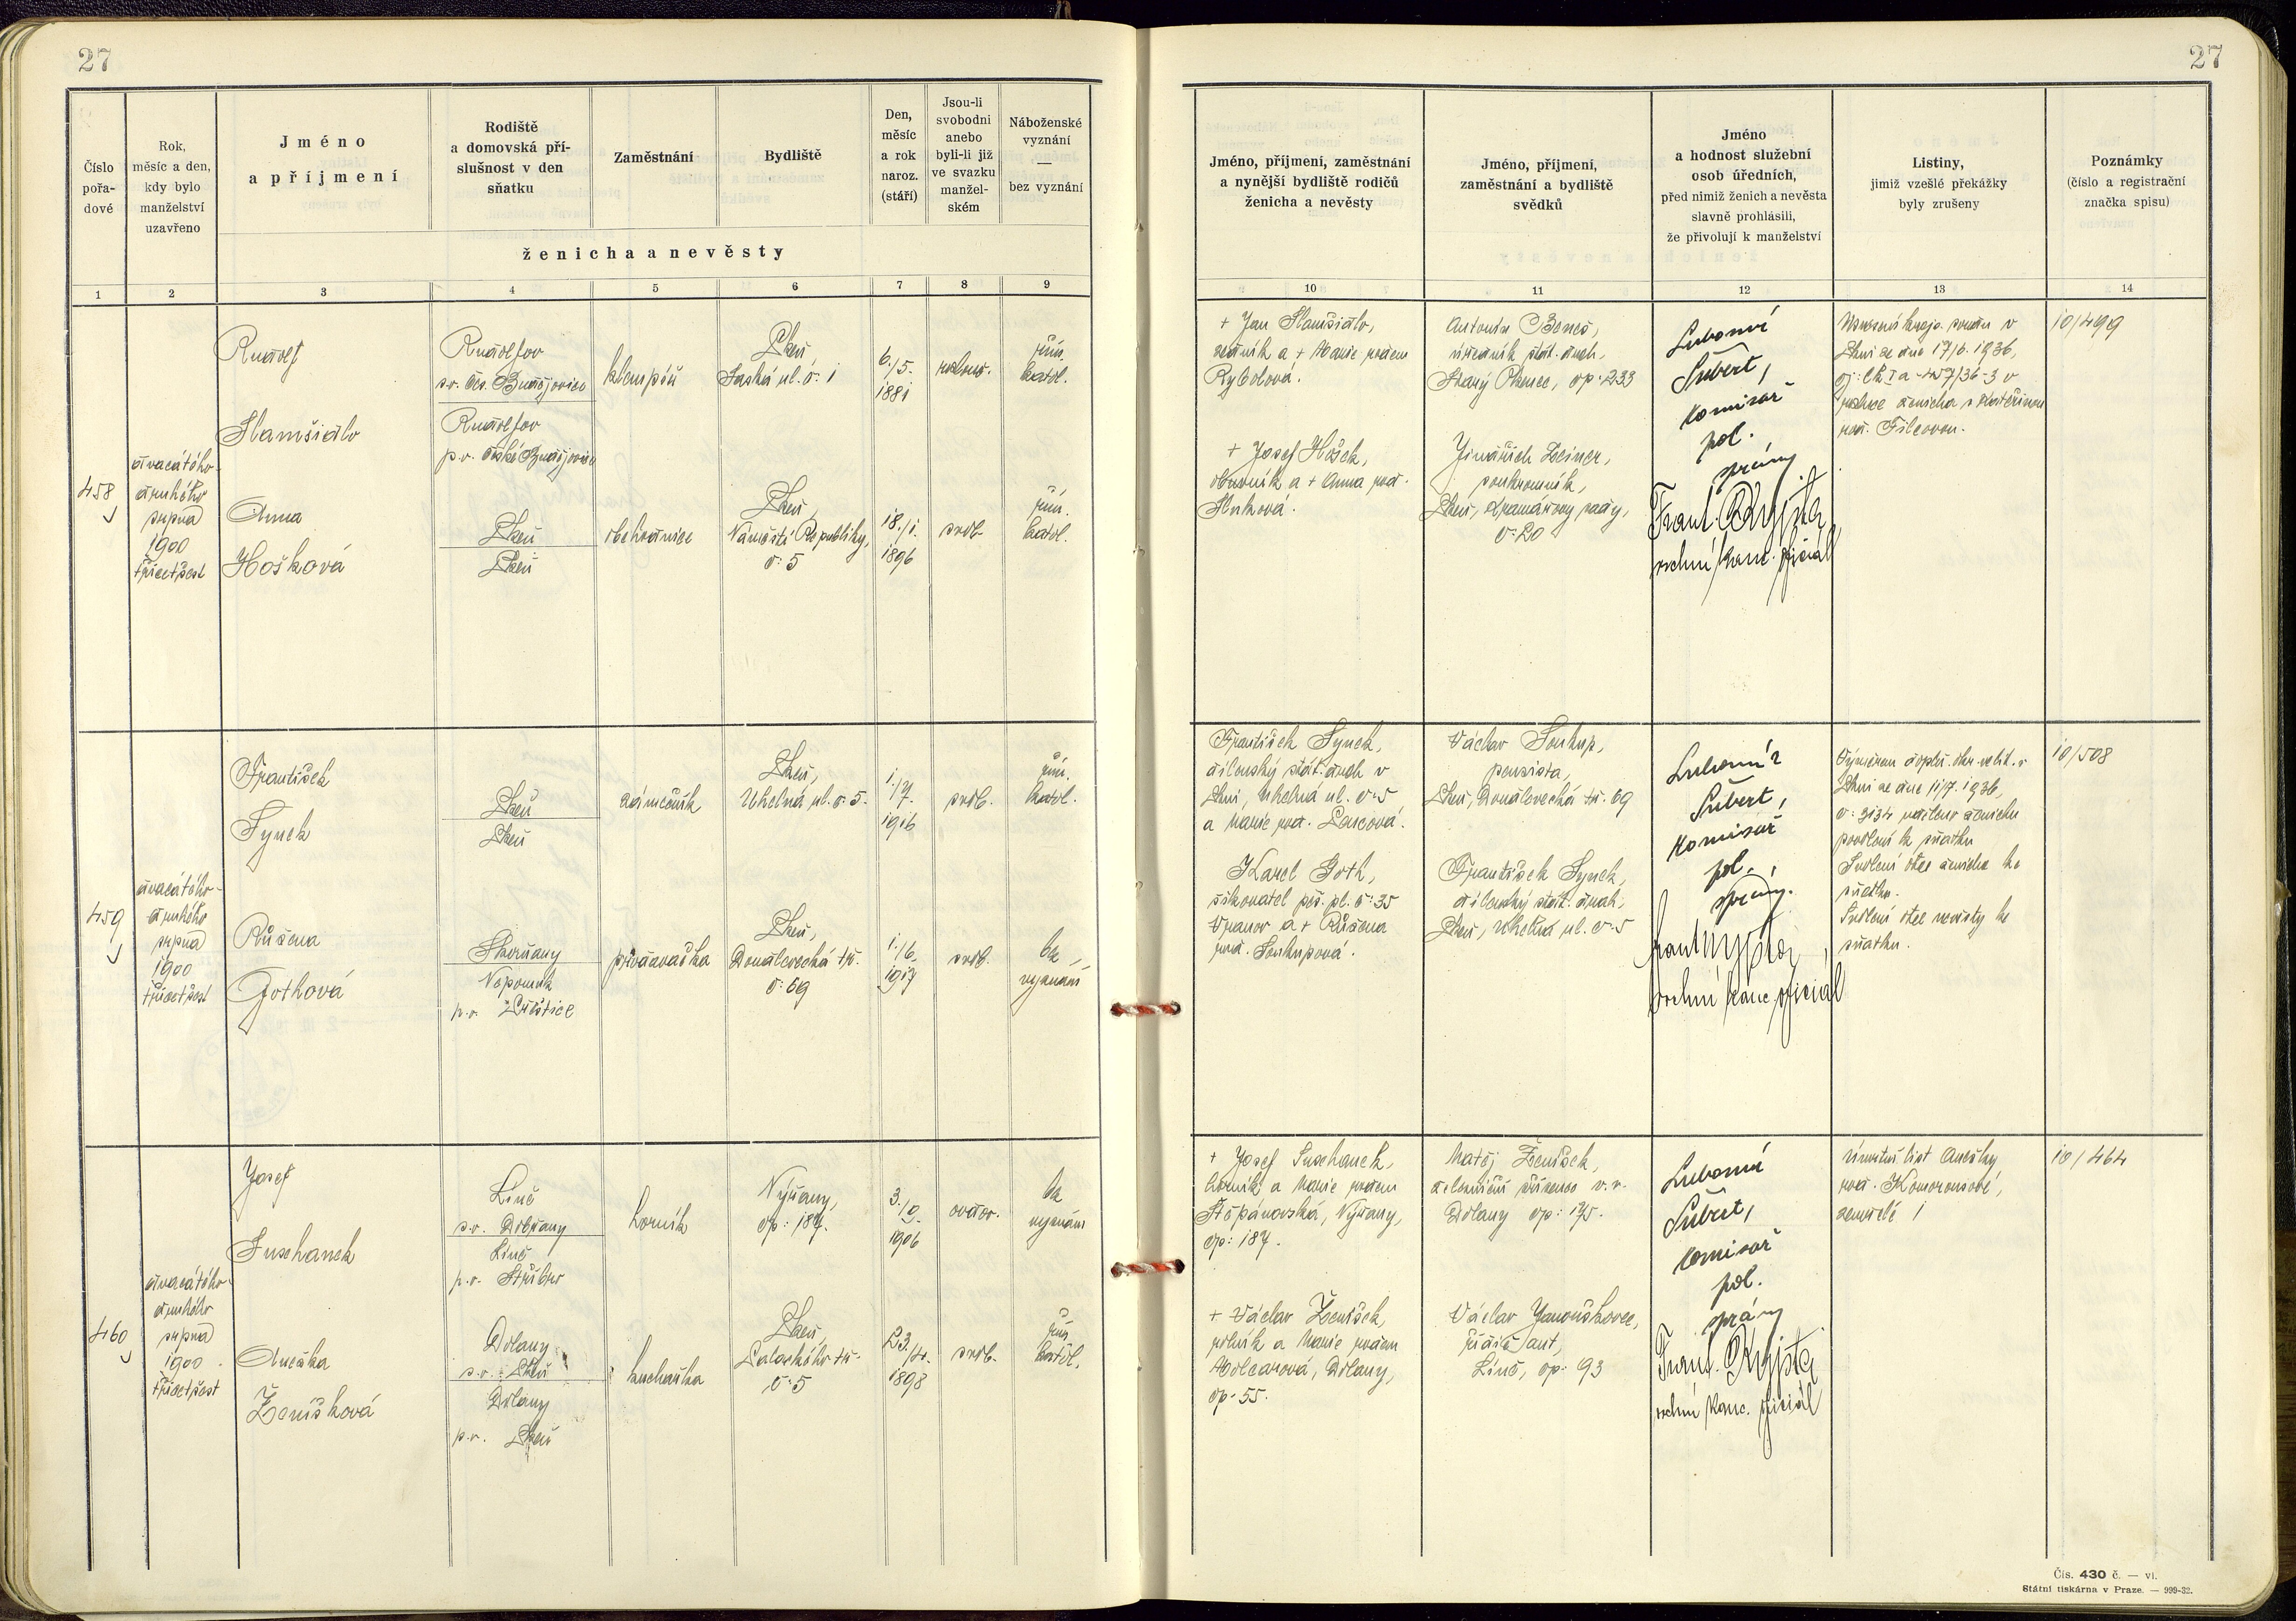 27
27
Číslo
pořa-
dové
Rok,
měsíc a den,
kdy bylo
manželství
uzavřeno
Jméno
a příjmení
Rodiště
a domovská pří-
slušnost v den
sňatku
Zaměstnání
Bydliště
Den,
měsíc
a rok
naroz.
(stáří)
Jsou-li
svobodni
anebo
byli-li již
ve svazku
manžel-
ském
Náboženské
vyznání
—
bez vyznání
ženicha a nevěsty
Jméno, příjmení, zaměstnání
a nynější bydliště rodičů
ženicha a nevěsty
Jméno, příjmení,
zaměstnání a bydliště
svědků
Jméno
a hodnost služební
osob úředních,
před nimiž ženich a nevěsta
slavně prohlásili,
že přivolují k manželství
Listiny,
jimiž vzešlé překážky
byly zrušeny
Poznámky
(číslo a registrační
značka spisu)
1 2 3 4 5 6 7 8 9
10 11 12 13 14
458
dvacátého
druhého
srpna
1900
třicetšest
Rudolf
Rudolfov
s.o. Čes. Budějovice
Rudolfov
p.o. České Budějovice
klempíř
Plzeň,
Saská ul. č. 1
6./5.
1881
rozlouč.
řím.
katol.
Anna
Hošková
Plzeň
Plzeň
obchodnice
Plzeň,
Náměstí Republiky,
č. 5
18./1.
1896
svob.
řím.
katol.
+ Josef Hošek,
obuvník a + Anna roz.
Antonín Beneš,
úředník stát. drah,
Starý Plzenec, čp. 233
Jindřich Leiner,
soukromník,
Plzeň, Kramářovy sady,
č. 20
Lubomír
Šubert,
komisař
pol.
správy
Frant. Kryjsta
vrchní kanc. oficiál
Plzni ze dne 17/6. 1936,
10/499
459
dvacátého
druhého
srpna
1900
třicetšest
František
Synek
Plzeň
Plzeň
zámečník
Plzeň,
Úhelná ul. č. 5.
1./7.
1916
svob.
řím.
katol.
Růžena
Gothová
Nepomuk
prodavačka
Plzeň,
Doudlevecká tř.
č. 69
1./6.
1917
svob.
bez
vyznání
František Synek,
dílenský stát. drah v
Plzni, Úhelná ul. č. 5
Karel Goth,
šikovatel pěš. pl. č. 35
Vranov a + Růžena
roz. Soukupová.
Václav Soukup,
pensista,
Plzeň, Doudlevecká tř. 69
František Synek,
dílenský stát. drah,
Plzeň, Úhelná ul. č. 5
Lubomír
Šubert,
komisař
pol.
správy.
vrchní kanc. oficiál
Plzni ze dne 11/7. 1936,
č. 3134 uděleno ženichu
povolení k sňatku
Svolení otce ženicha ke
sňatku.
Svolení otce nevěsty ke
sňatku.
10/508
460
dvacátého
druhého
srpna
1900
třicetšest
Josef
Suschanek
Líně
s.o. Dobřany
Líně
p.o. Stříbro
horník
Nýřany,
čp: 187.
3./9.
1906
ovdov.
bez
vyznání
Anežka
Ženíšková
Dolany
s.o. Plzeň
Dolany
p.o. Plzeň
kuchařka
Plzeň,
Palackého tř.
č. 5
23./4.
1898
svob.
řím.
katol.
+ Josef Suschanek,
horník a Marie rozen
Štěpánovská, Nýřany,
čp: 187.
+ Václav Ženíšek,
rolník a Marie rozen
Dolany,
čp. 55.
Matěj Ženíšek,
železniční zřízenec v.v.
Dolany čp: 175.
Václav Janouškovec,
Líně, čp: 93
Lubomír
Šubert,
komisař
pol.
správy
Frant. Kryjsta
vrchní kanc. oficiál
Úmrtní list Anežky
roz. Komorousové,
zemřelé
10/464
Čís. 430 č. — vi.
Státní tiskárna v Praze. — 999-32.